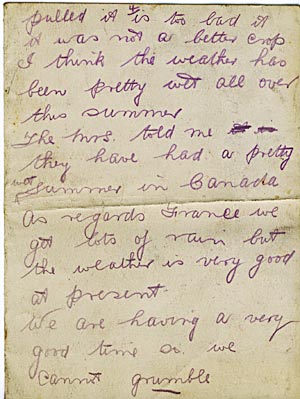 pulled it is to bad it
it was not a better crop
I think the weather has
been pretty wet all over
this summer
The Mrs. told me
they have had a pretty
wet Summer in Canada
As regards France we
got lots of rain but
the weather is very good
at present
We are having a very
good time so we
cannot grumble